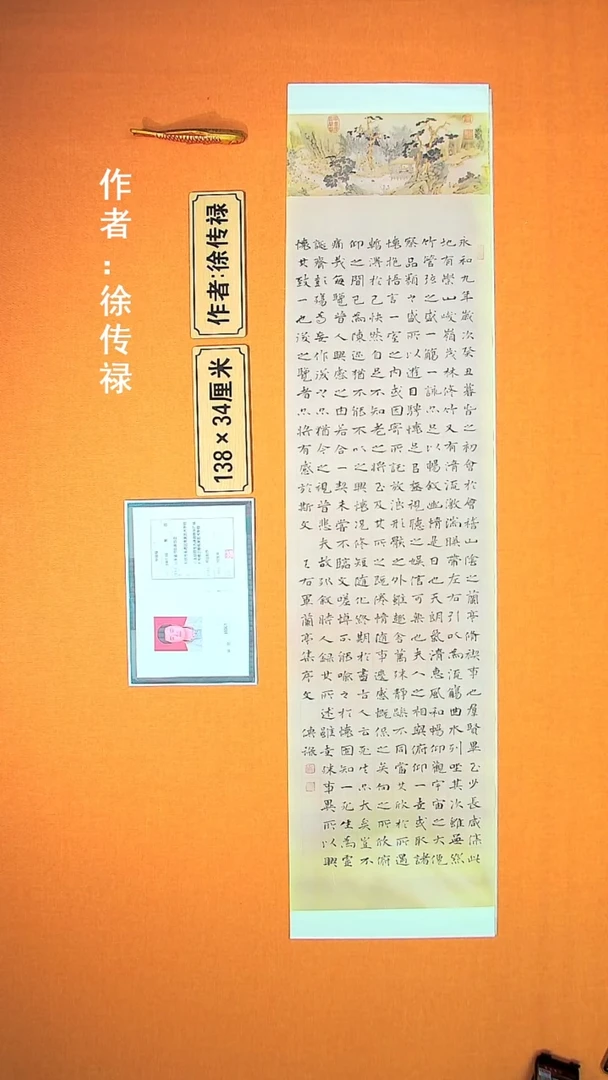 作者：徐传禄
作者:徐传禄
138×34厘米
永和九年歲次癸丑暮春之初會於會稽山陰之蘭亭脩禊事也羣賢畢至少長咸集此
地有崇山峻嶺茂林脩竹又有清流激湍暎帶左右引以為流觴曲水列坐其次雖無絲
竹管弦之盛一觴一詠亦足以暢叙幽情是日也天朗氣清惠風和暢仰觀宇宙之大俛
察品類之盛所以遊目騁懷足以極視聽之娛信可樂也夫人之相與俯仰一世或取諸
懷抱悟言一室之內或因寄所託放浪形骸之外雖趣舍萬殊靜躁不同當其欣於所遇
暫得於己快然自足不知老之將至及其所之既倦情隨事遷感慨係之矣向之所欣俯
仰之間以為陳迹猶不能不以之興懷況修短隨化終期於盡古人云死生亦大矣豈不
痛哉每覽昔人興感之由若合一契未嘗不臨文嗟悼不能喻之於懷固知一死生為虛
誕齊彭殤為妄作後之視今亦猶今之視昔悲夫故列叙時人錄其所述雖世殊事異所以興
懷其致一也後之覽者亦將有感於斯文 王右軍蘭亭集序文 傳祿